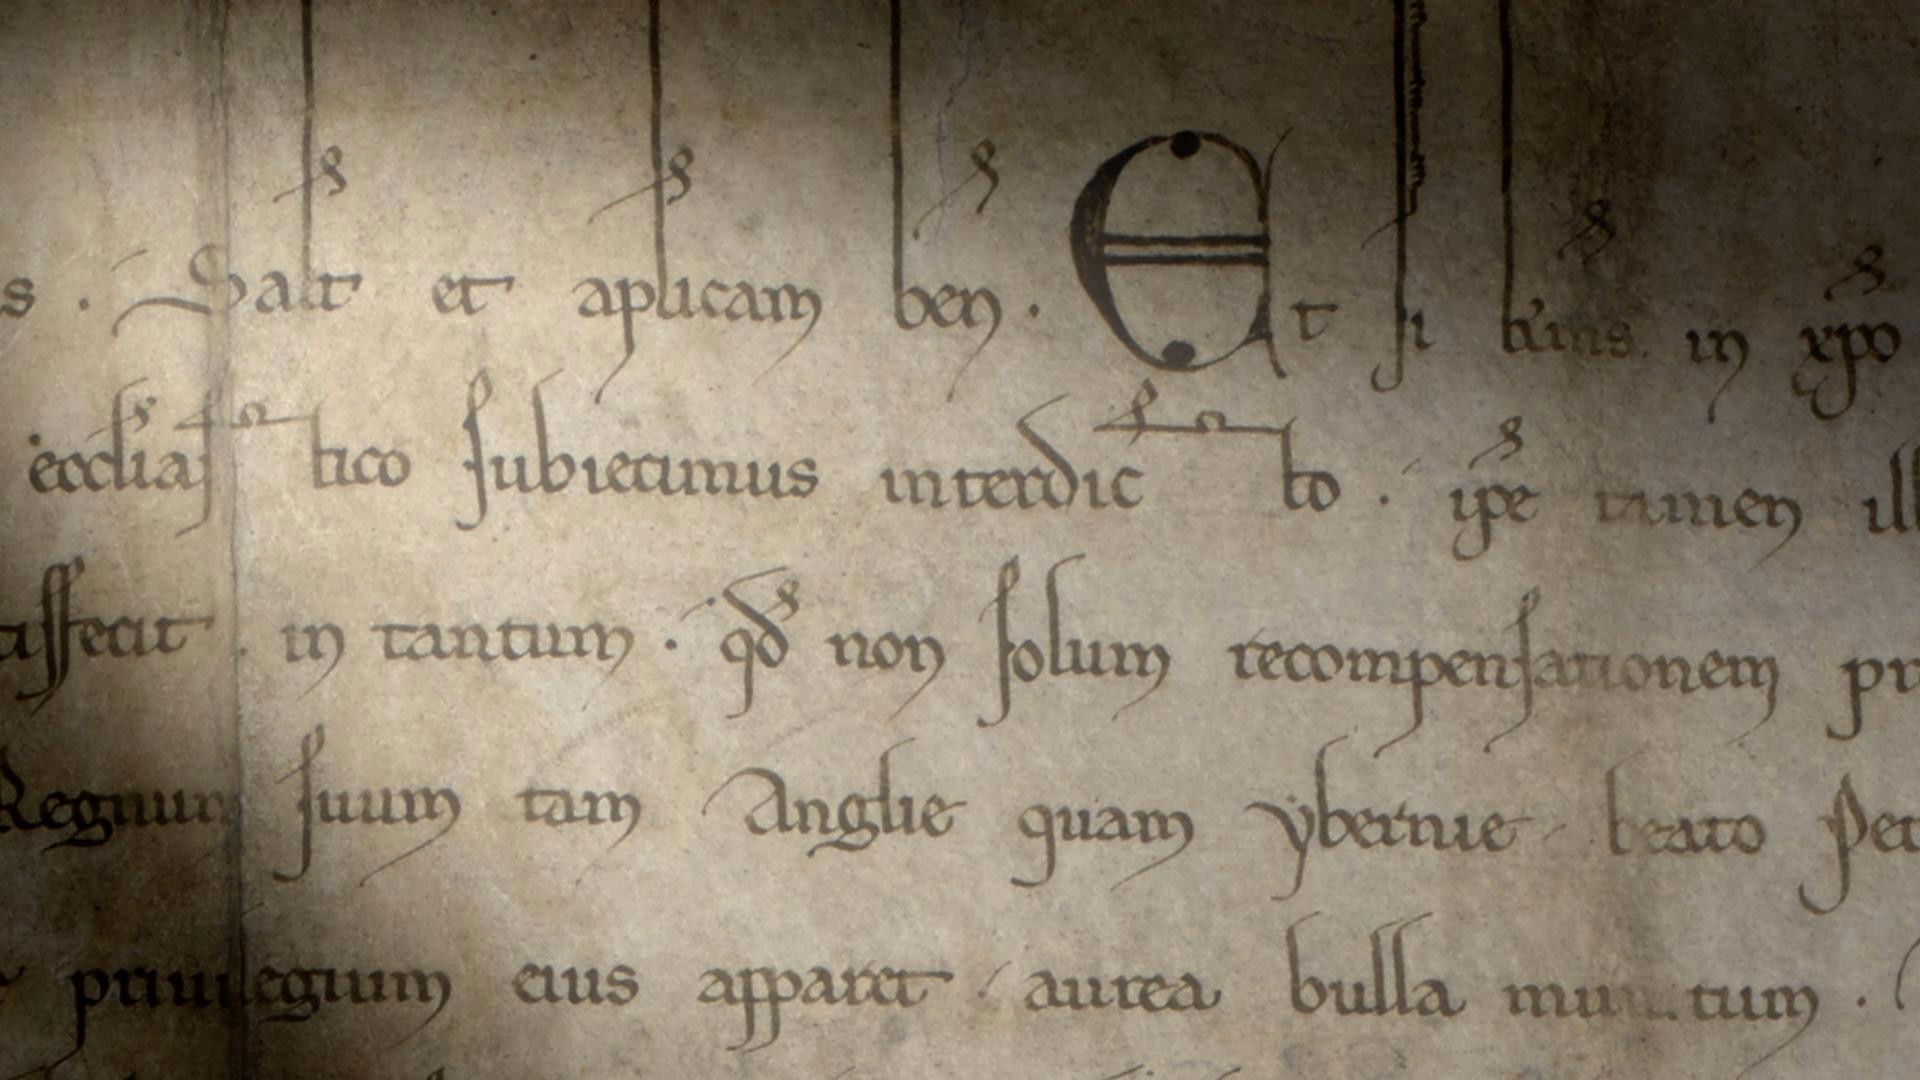 s . Salt et aplicam ben . Et si in xpo
ecclias tico subiecimus interdic to . ipe tamen ill
tisfecit in tantum . qd non solum recompensationem pr
Regnum suum tam Anglie quam ybernie beato Pet
privilegium eius apparet . aurea bulla munitum .